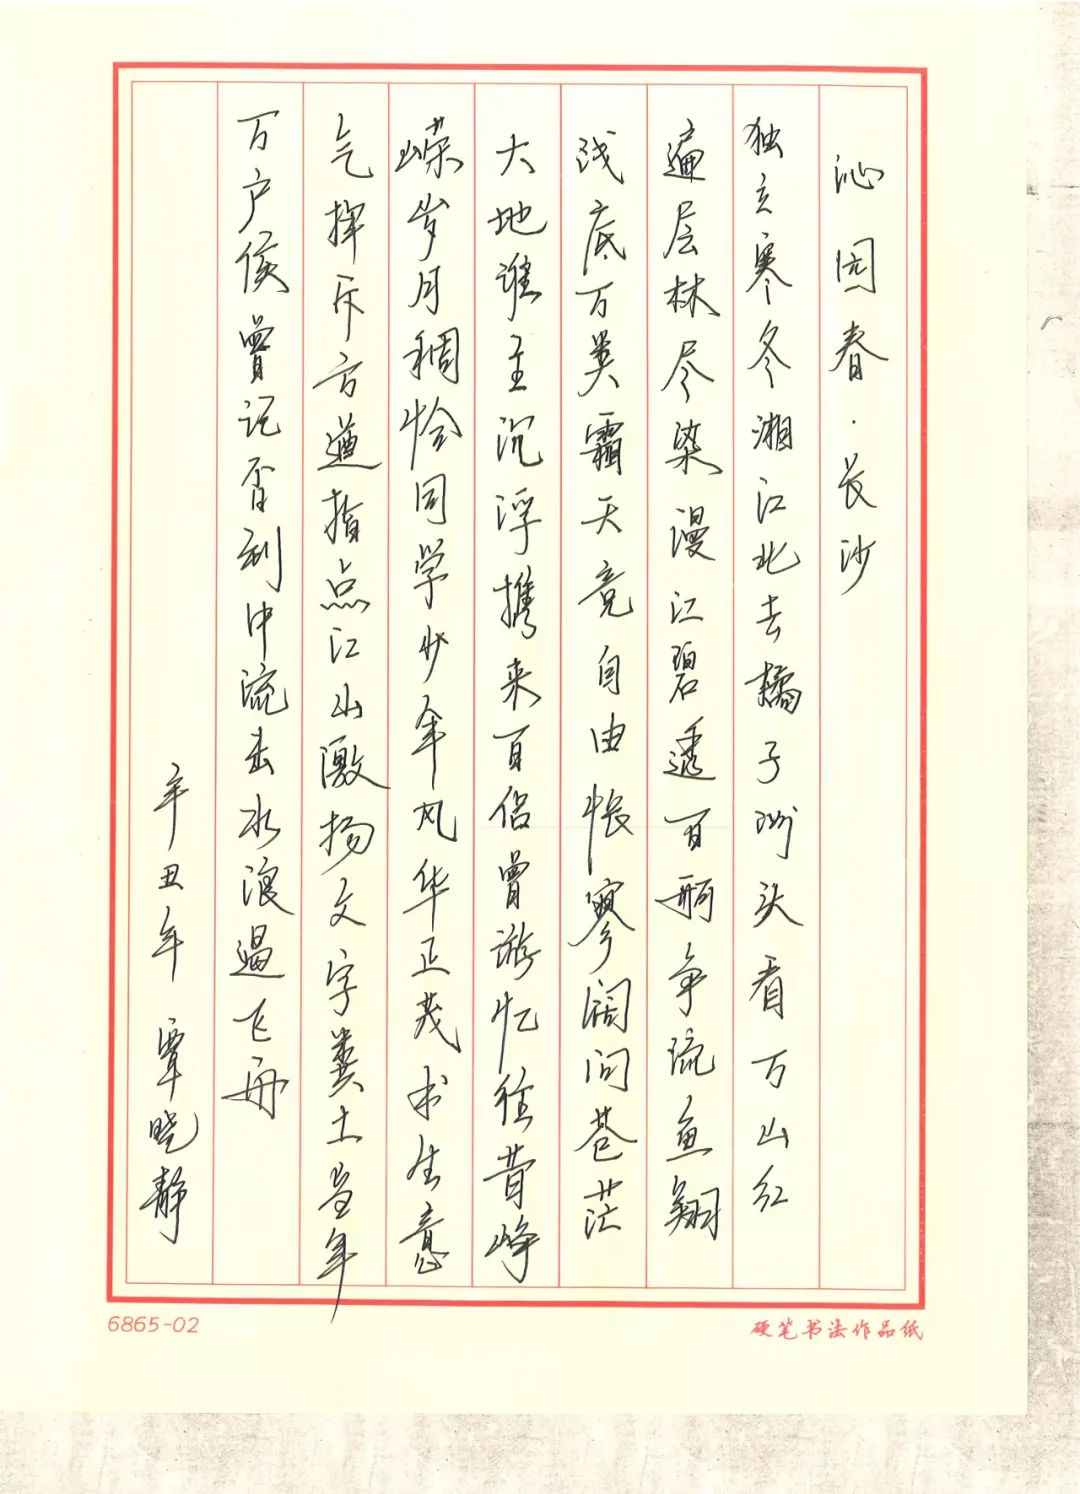 沁园春·长沙
独立寒冬湘江北去橘子洲头看万山红
遍层林尽染漫江碧透百舸争流鱼翔
浅底万类霜天竞自由怅寥阔问苍茫
大地谁主沉浮携来百侣曾游忆往昔峥
嵘岁月稠恰同学少年风华正茂书生意
气挥斥方遒指点江山激扬文字粪土当年
万户侯曾记否到中流击水浪遏飞舟
辛丑年 覃晓静
6865-02
硬笔书法作品纸